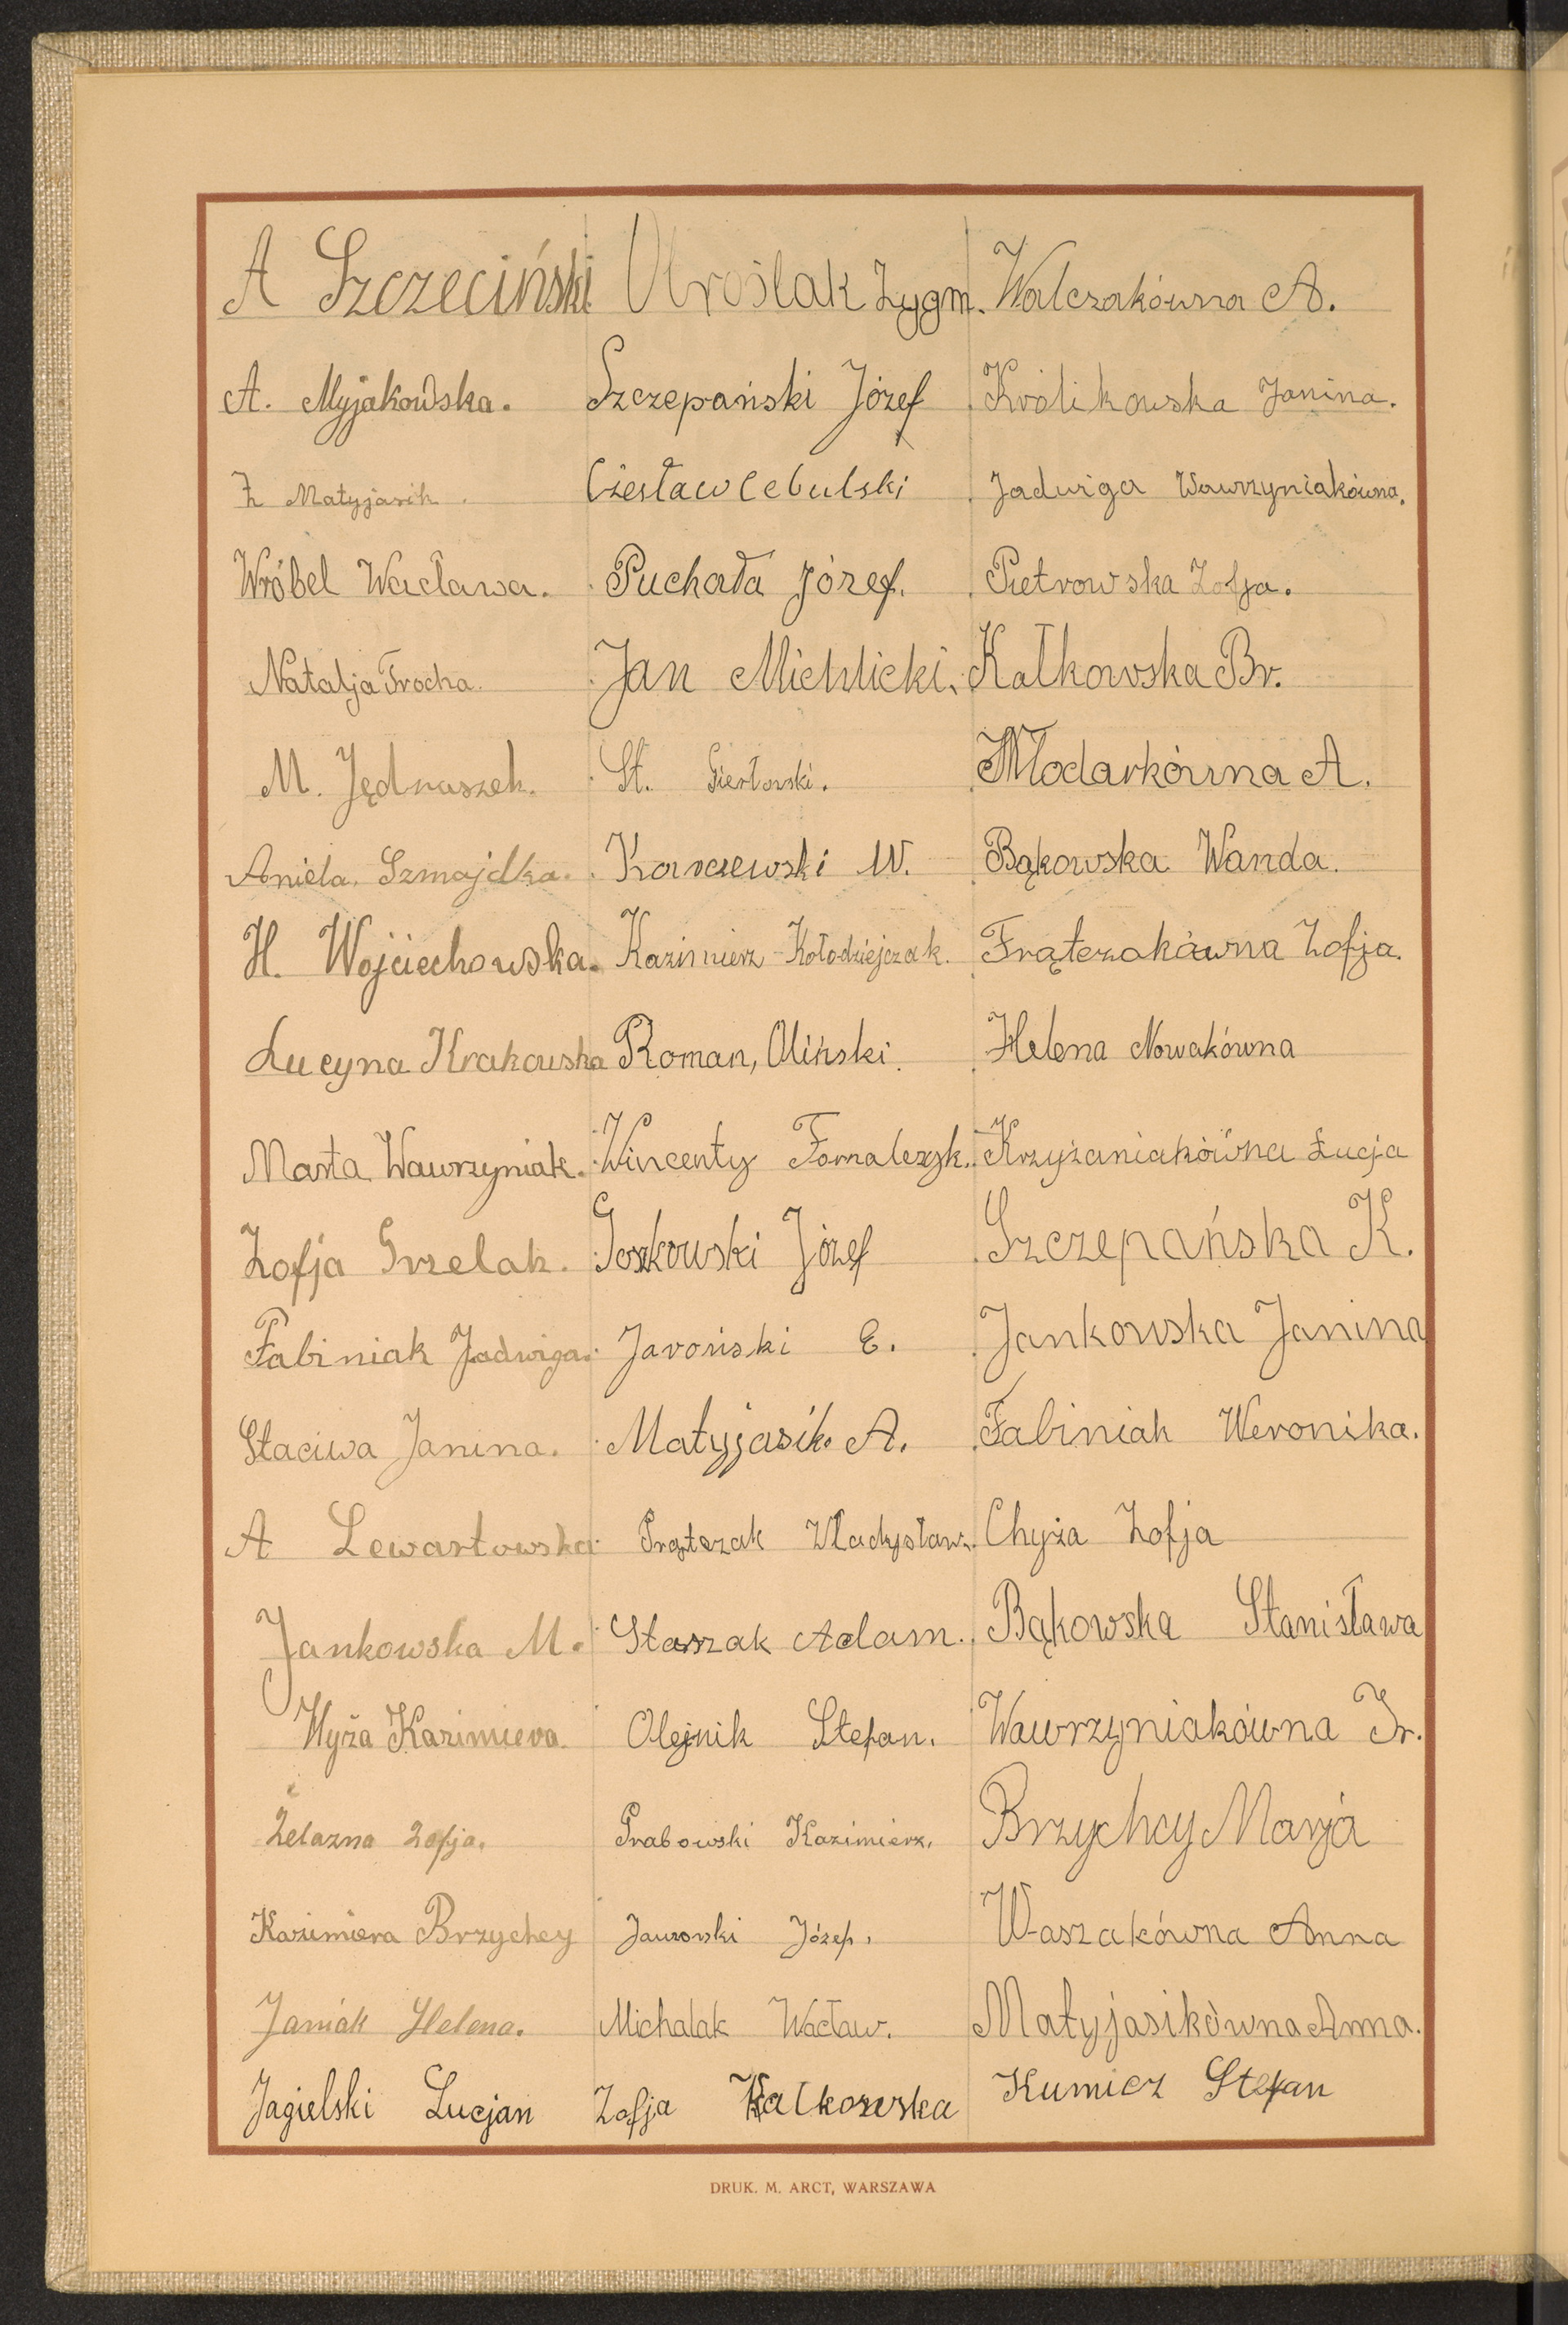 A Szczeciński
A. Myjakowska.
Z Matyjasik.
Wróbel Wacława.
Natalja Trocha.
M. Jędraszek.
Aniela Szmajdka.
H. Wojciechowska.
Lucyna Krakowska
Marta Wawrzyniak.
Zofja Grzelak.
Fabiniak Jadwiga.
Staciwa Janina.
A Lewartowska
Jankowska M.
Hyża Kazimiera
Żelazna Zofja.
Kazimiera Brzychcy
Janiak Helena.
Jagielski Lucjan
Uroślak Zygm.
Szczepański Józef
Czesław Cebulski
Puchała Józef.
Jan Michlicki.
St.
Karczewski W.
Kazimierz Kołodziejczak.
Roman, Oliński.
Wincenty Fornalczyk.
Goszkowski Józef
Jaroński E.
Matyjasik. A.
Frątczak Władysław.
Staszak Adam.
Olejnik Stefan.
Grabowski Kazimierz.
Jaworski Józef.
Michalak Wacław.
Zofja Kałkowska
Walczakówna A.
Królikowska Janina.
Jadwiga Wawrzyniakówna.
Pietrowska Zofja.
Kałkowska Br.
Włodarkówna A.
Bąkowska Wanda.
Frątczakówna Zofja.
Helena Nowakówna
Krzyżaniakówna Łucja
Szczepańska K.
Jankowska Janina
Fabiniak Weronika.
Chyża Zofja
Bąkowska Stanisława
Wawrzyniakówna Ir.
Brzychcy Marja
Waszakówna Anna
Matyjasikówna Anna.
Kumicz Stefan
DRUK. M. ARCT, WARSZAWA